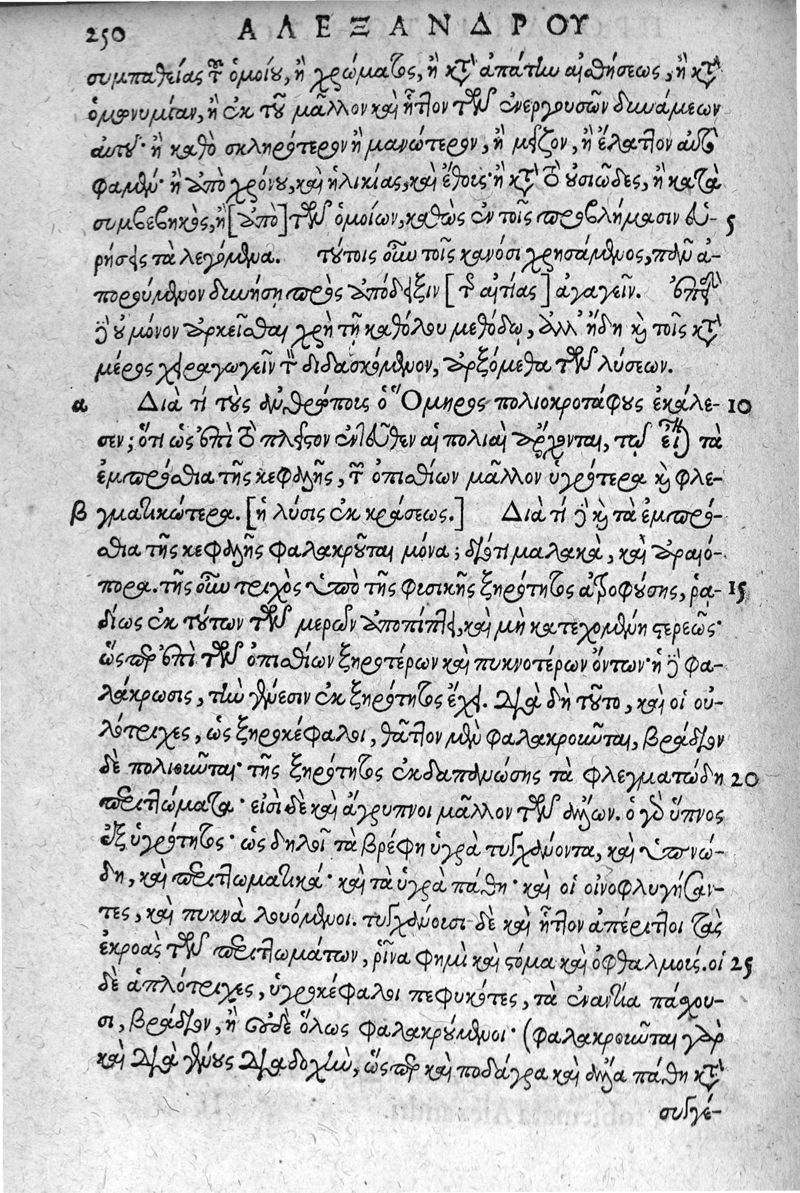 250 ΑΛΕΞΑΝΔΡΟΥ
συμπαθείας τοῦ ὁμοίου, ἢ χρώματος, ἢ κατ' ἀπάτην αἰσθήσεως, ἢ καθ'
ὁμωνυμίαν, ἢ ἐκ τοῦ μᾶλλον καὶ ἧττον τῶν ἐνεργουσῶν δυνάμεων
αὐτοῦ· ἢ καθὸ σκληρότερον ἢ μανώτερον, ἢ μεῖζον, ἢ ἔλαττον αὐτὸ
φαμέν· ἢ ἀπὸ χρόνου, καὶ ἡλικίας, καὶ ἔθοις· ἢ κατὰ τὸ οὐσιῶδες, ἢ κατὰ
συμβεβηκὸς, ἢ [ἀπὸ] τῶν ὁμοίων, καθὼς ἐν τοῖς προβλήμασιν εὑ- 5
ρήσεις τὰ λεγόμενα. τούτοις οὖν τοῖς κανόσι χρησάμενος, πᾶν ἀ-
πορούμενον δυνήσῃ πρὸς ἀπόδειξιν [τῆς αἰτίας] ἀγαγεῖν. ἐπεὶ
δὲ οὐ μόνον ἀρκεῖσθαι χρὴ τῇ καθόλου μεθόδῳ, ἀλλ' ἤδη καὶ τοῖς κατὰ
μέρος χειραγωγεῖν τὸν διδασκόμενον, ἀρξόμεθα τῶν λύσεων.
α Διὰ τί τοὺς ἀνθρώποις ὁ Ὅμηρος πολιοκροτάφους ἐκάλε- 10
σεν; ὅτι ὡς ἐπὶ τὸ πλεῖστον ἐντεῦθεν αἱ πολιαὶ ἄρχονται, τῷ εἶναι τὰ
ἐμπρόσθια τῆς κεφαλῆς, τῶν ὀπισθίων μᾶλλον ὑγρότερα καὶ φλε-
β γματικώτερα. [ἡ λύσις ἐκ κράσεως.] Διὰ τί δὲ καὶ τὰ ἐμπρό-
σθια τῆς κεφαλῆς φαλακροῦται μόνα; διότι μαλακὰ, καὶ ἀραιό-
πορα. τῆς οὖν τριχὸς ὑπὸ τῆς φυσικῆς ξηρότητος ἀποφύσης, ῥα- 15
δίως ἐκ τούτων τῶν μερῶν ἀποπίπτει, καὶ μὴ κατεχομένη στερεῶς·
ὥσπερ ἐπὶ τῶν ὀπισθίων ξηροτέρων καὶ πυκνοτέρων ὄντων· ἡ δὲ φα-
λάκρωσις, τὴν γένεσιν ἐκ ξηρότητος ἔχει. Διὰ δὴ τοῦτο, καὶ οἱ οὐ-
λότριχες, ὡς ξηροκέφαλοι, θᾶττον μὲν φαλακροιοῦται, βράδιον
δὲ πολιοιοῦται· τῆς ξηρότητος ἐκδαπανώσης τὰ φλεγματώδη 20
περιττώματα· εἰσὶ δὲ καὶ ἄγρυπνοι μᾶλλον τῶν ἄλλων. ὁ γὰρ ὕπνος
ἐξ ὑγρότητος· ὡς δηλοῖ τὰ βρέφη ὑγρὰ τυγχάνοντα, καὶ ὑπνώ-
δη, καὶ περιττωματικά· καὶ τὰ ὑγρὰ πάθη· καὶ οἱ οἰνοφλυγήσαν-
τες, καὶ πυκνὰ λουόμενοι. τυγχάνουσι δὲ καὶ ἧττον ἀπέριττοι τὰς
ἐκροὰς τῶν περιττωμάτων, ῥῖνα φημὶ καὶ στόμα καὶ ὀφθαλμοίς. οἱ 25
δὲ ἁπλότριχες, ὑγροκέφαλοι πεφυκότες, τὰ ἐναντία πάσχου-
σι, βράδιον, ἢ οὐδὲ ὅλως φαλακρούμενοι· (φαλακροιοῦται γὰρ
καὶ διὰ γένους διαδοχὴν, ὥσπερ καὶ ποδάγρα καὶ ἄλλα πάθη κατὰ
συγγέ-